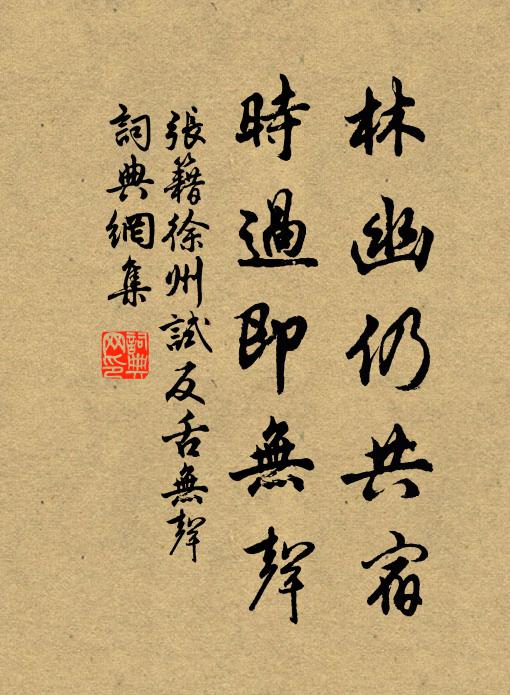 林幽仍共宿
時過即無聲
張籍徐州試反舌無聲
詞典網集
詞典网印